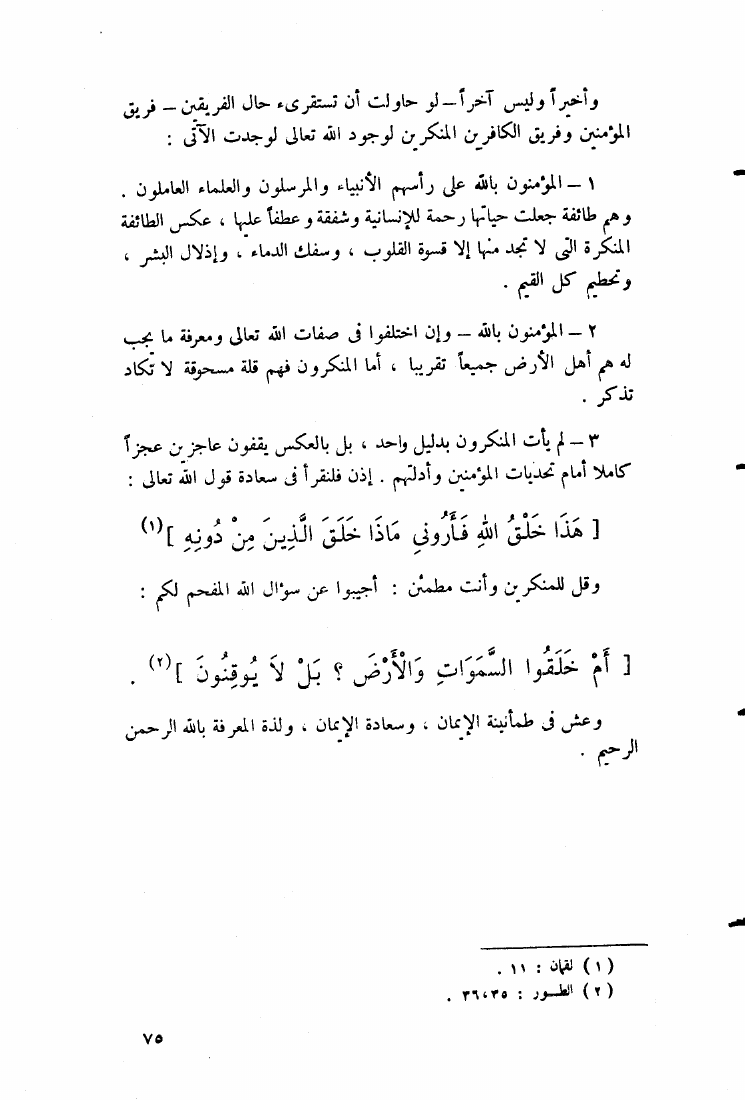 وأخيراً وليس آخراً – لو حاولت أن تستقرىء حال الفريقين – فريق
المؤمنين وفريق الكافرين المنكرين لوجود الله تعالى لوجدت الآتى :
١ – المؤمنون بالله على رأسهم الأنبياء والمرسلون والعلماء العاملون .
وهم طائفة جعلت حياتها رحمة للإنسانية وشفقة وعطفاً عليها ، عكس الطائفة
المنكرة التى لا تجد منها إلا قسوة القلوب ، وسفك الدماء ، وإذلال البشر ،
وتحطيم كل القيم .
٢ – المؤمنون بالله – وإن اختلفوا فى صفات الله تعالى ومعرفة ما يجب
له هم أهل الأرض جميعاً تقريبا ، أما المنكرون فهم قلة مسحوقة لا تكاد
تذكر .
٣ – لم يأت المنكرون بدليل واحد ، بل بالعكس يقفون عاجزين عجزاً
كاملا أمام تحديات المؤمنين وأدلتهم . إذن فلنقرأ فى سعادة قول الله تعالى :
[ هَذَا خَلْقُ اللهِ فَأَرُونِي مَاذَا خَلَقَ الَّذِينَ مِنْ دُونِهِ ](١)
وقل للمنكرين وأنت مطمئن : أجيبوا عن سؤال الله المفحم لكم :
[ أَمْ خَلَقُوا السَّمَوَاتِ وَالْأَرْضَ ؟ بَلْ لَا يُوقِنُونَ ](٢) .
وعش فى طمأنينة الإيمان ، وسعادة الإيمان ، ولذة المعرفة بالله الرحمن
الرحيم .
(١) لقمان : ١١ .
(٢) الطــور : ٣٥،٣٦ .
٧٥